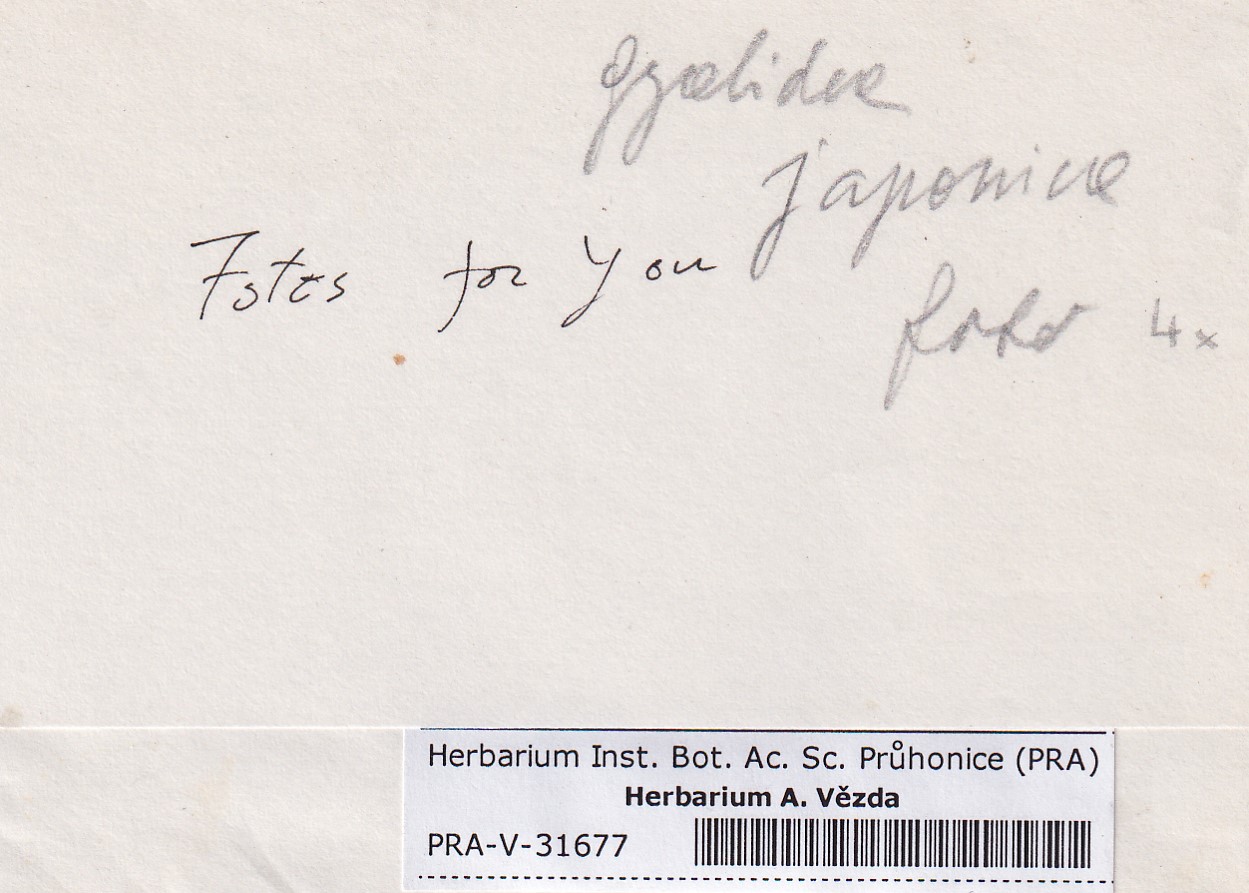 Gyalidea
japonica
Fotos for You
foto 4x
Herbarium Inst. Bot. Ac. Sc. Průhonice (PRA)
Herbarium A. Vězda
PRA-V-31677